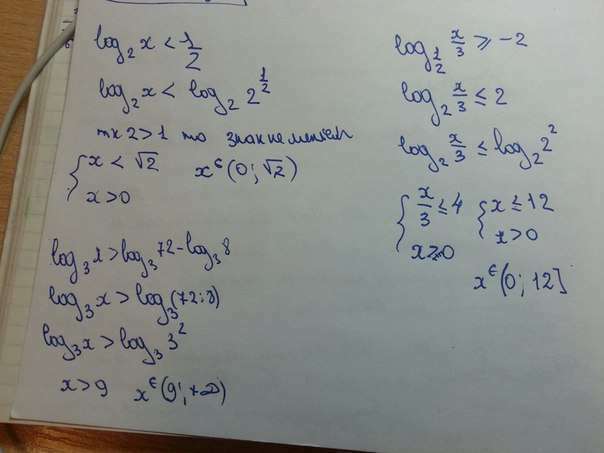 log₂ x < 1/2
log₂ x < log₂ 2^(1/2)
тк 2 > 1 то знак не меняем
{ x < √2    x ∈ (0; √2)
x > 0
log₃ x > log₃ 72 - log₃ 8
log₃ x > log₃ (72:8)
log₃ x > log₃ 3²
x > 9    x ∈ (9; +∞)
log_(1/2) x/3 ⩾ -2
log₂ x/3 ≤ 2
log₂ x/3 ≤ log₂ 2²
{ x/3 ≤ 4    { x ≤ 12
x > 0    x > 0
x ∈ (0; 12]